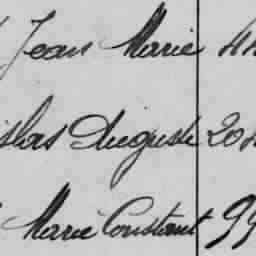 Jean Marie 44
islas Auguste 204
Marie Constant 99